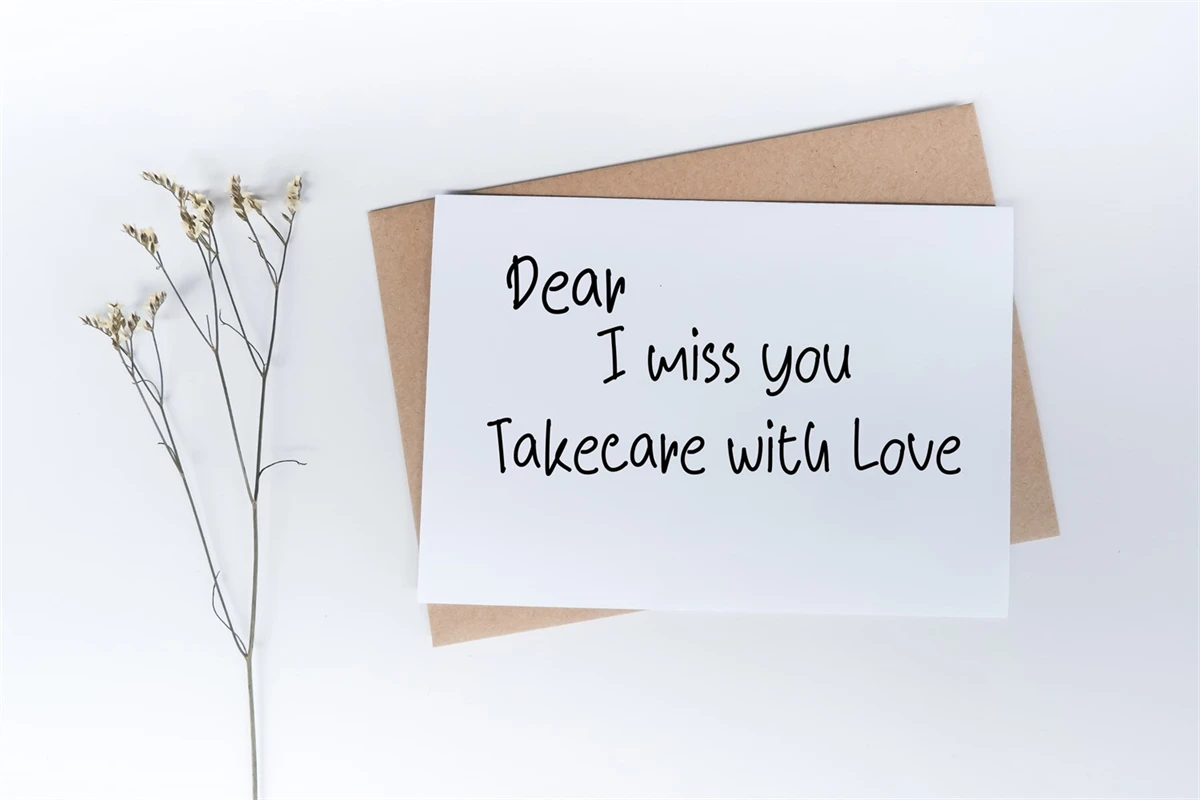 Dear
I miss you
Takecare with Love